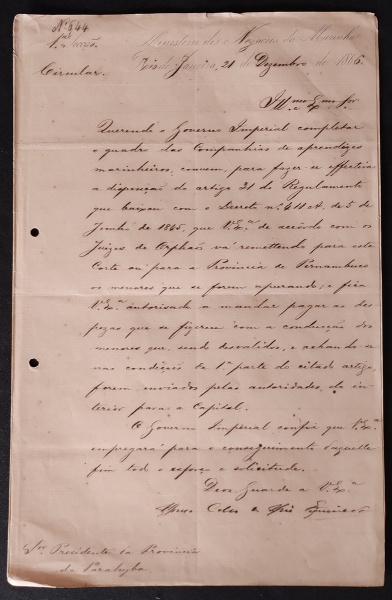 Nº 844
1ª Secção.
Circular.
Ministerio dos Negocios da Marinha
Rio de Janeiro, 21 de Dezembro de 1876.
Illmo e Exmo Snr
Querendo o Governo Imperial completar
o quadro das Companhias de aprendizes
marinheiros, convem, para fazer-se effectiva
a disposição do artigo 21 do Regulamento
que baixou com o Decreto nº 411 A. de 5 de
Junho de 1845, que V. Exª de accordo com os
Juizes de Orphãos vá remettendo para esta
Corte ou para a Provincia de Pernambuco
os menores que se forem apurando; e fica
V. Exª autorisado a mandar pagar as des
pezas que se fizerem com a conducção dos
menores que, sendo desvalidos, e achando-se
nas condições da 1ª parte do citado artigo,
forem enviados pelas autoridades do in
terior para a Capital.
O Governo Imperial confia que V. Exª
empregará para o conseguimento daquelle
fim todo o esforço e solicitude.
Deos Guarde a V. Exª
Snr Presidente da Provincia
da Parahyba